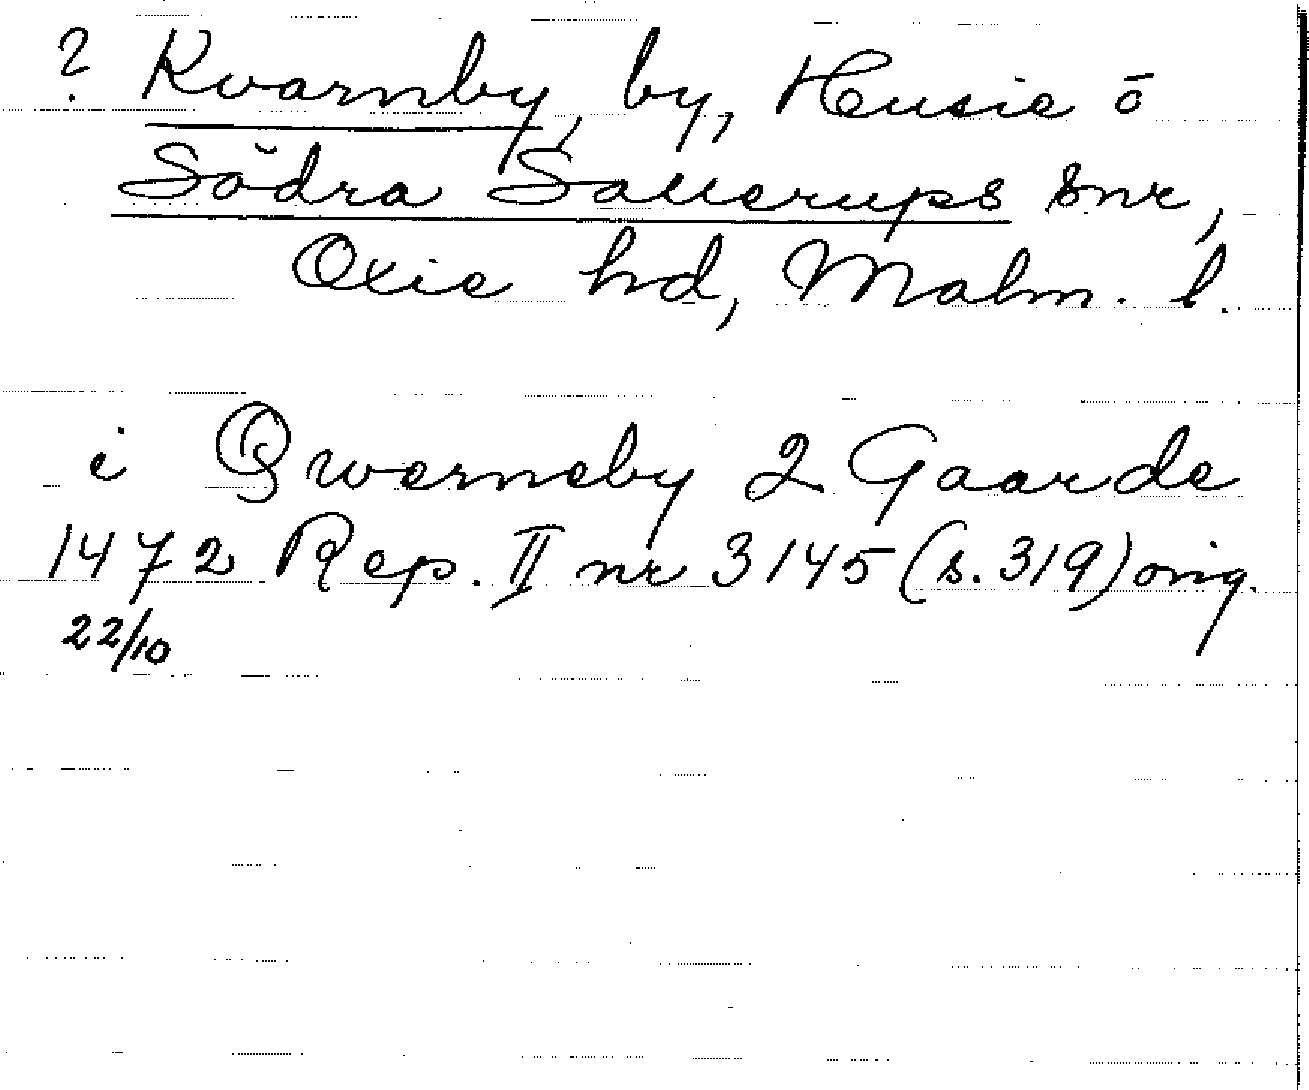 ? Kvarnby, by, Husie o
Södra Sallerups snr,
Oxie hd, Malm. l.
i Qwerneby 2 Gaarde
1472 Rep. II nr 3145 (s. 319) orig.
22/10